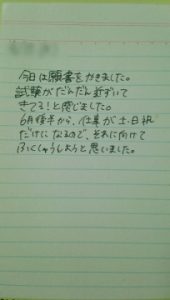 今日は願書をかきました。
試験がだんだん近ずいて
きてる！と感じました。
6月後半から、仕事が土・日・祝
だけになるので、それに向けて
ふくしゅうしようと思いました。